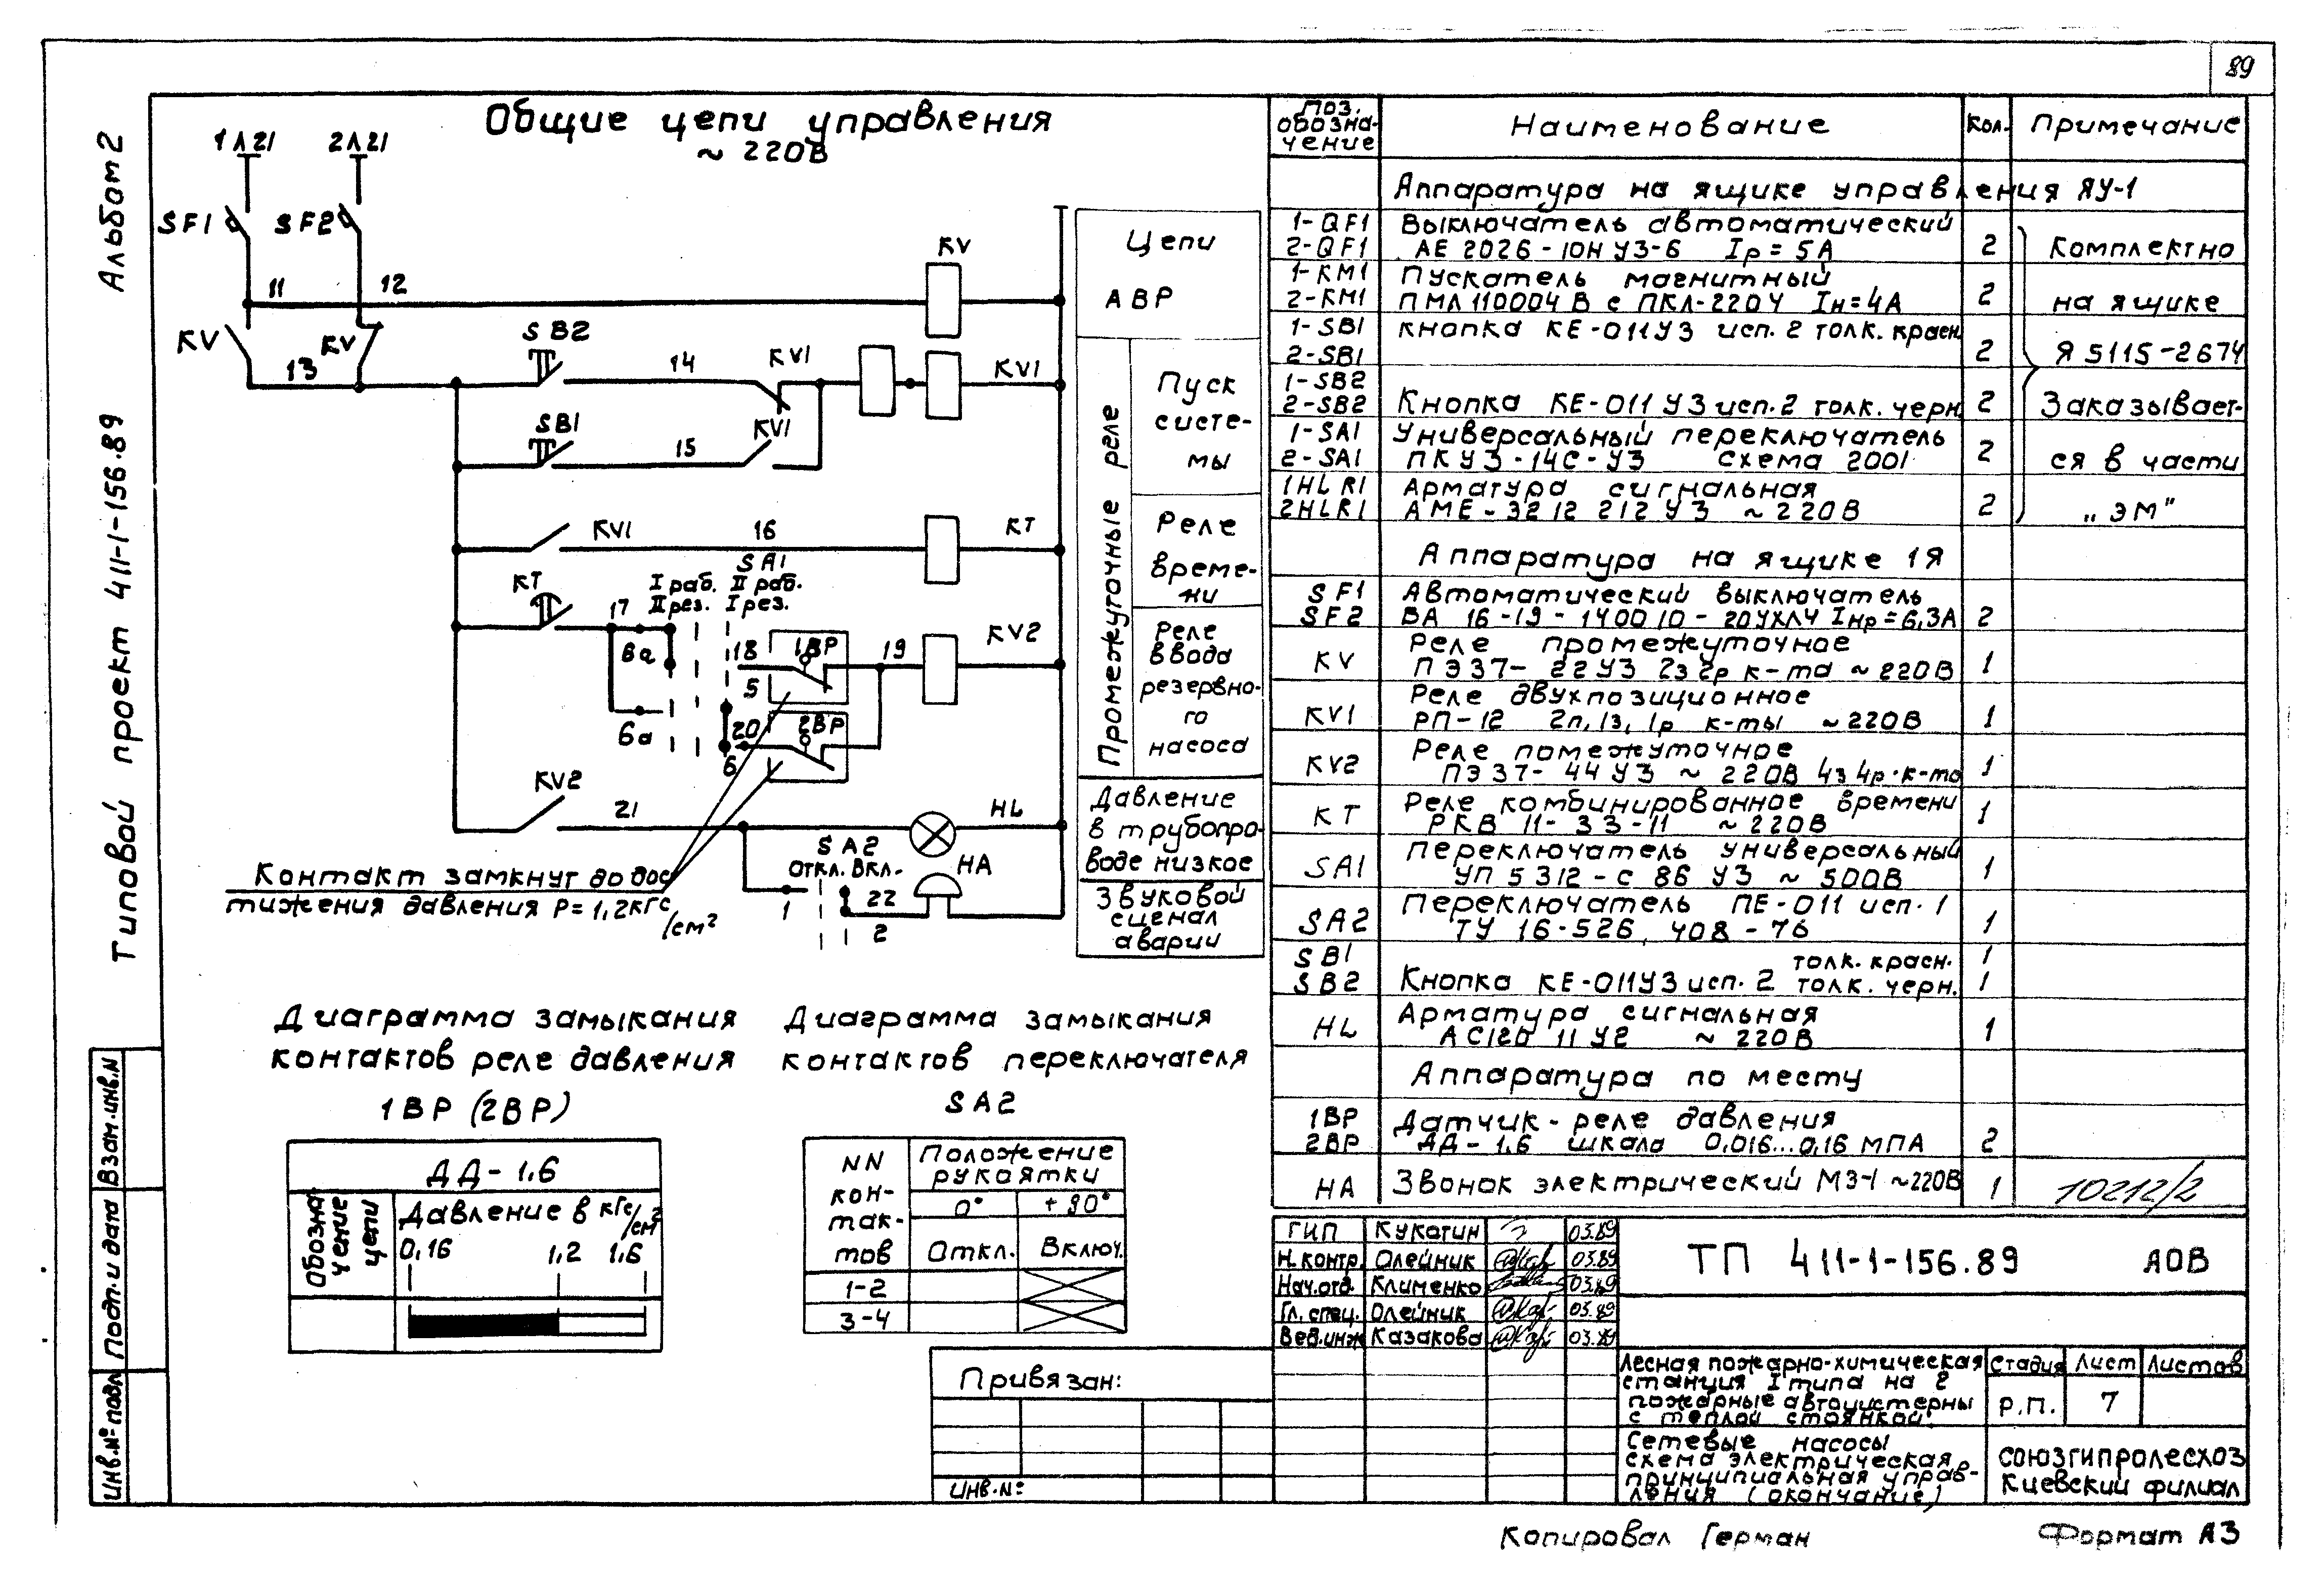 89
Альбом 2
Типовой проект 411-1-156.89
Взам.инв.N
Подп.и дата
Инв.№ подл
Общие цепи управления
~ 220В
1Л21
2Л21
SF1
SF2
11
12
KV
KV
KV
13
SB2
14
KV1
KV1
SB1
15
KV1
KV1
16
KT
SA1
KT
I раб. II раб.
II рез. I рез.
17
8а
6а
18
5
1ВР
19
KV2
20
6
2ВР
KV2
21
HL
SA2
ОТКЛ. ВКЛ.
HA
1
22
2
Контакт замкнут до дос
тижения давления Р=1,2кгс
/см²
Цепи
АВР
Промежуточные реле
Пуск
систе-
мы
Реле
време-
ни
Реле
ввода
резервно-
го
насоса
Давление
в трубопро
воде низкое
Звуковой
сигнал
аварии
Диаграмма замыкания
контактов реле давления
1ВР (2ВР)
ДД-1.6
Обозна-
чение
цепи
Давление в кгс/см²
0,16 1,2 1,6
Диаграмма замыкания
контактов переключателя
SA2
NN
кон-
так-
тов
Положение
рукоятки
0° +90°
Откл. Включ.
1-2
3-4
Поз.
обозна-
чение
Наименование
Кол.
Примечание
Аппаратура на ящике управления ЯУ-1
1-QF1 Выключатель автоматический
2-QF1 АЕ 2026-10Н У3-6 Iр=5А 2 Комплектно
1-KM1 Пускатель магнитный
2-KM1 ПМЛ110004В с ПКЛ-2204 Iн=4А 2 на ящике
1-SB1 Кнопка КЕ-011У3 исп. 2 толк. красн.
2-SB1 2 Я5115-2674
1-SB2
2-SB2 Кнопка КЕ-011У3 исп.2 толк. черн. 2 Заказывает-
1-SA1 Универсальный переключатель
2-SA1 ПКУ3-14С-У3 схема 2001 2 ся в части
1HLR1 Арматура сигнальная
2HLR1 АМЕ-3212 212У3 ~220В 2 „ЭМ"
Аппаратура на ящике 1Я
SF1 Автоматический выключатель
SF2 ВА 16-19-140010-20УХЛ4 Iнр=6,3А 2
Реле промежуточное
KV ПЭ37-22У3 2з2р к-та ~220В 1
Реле двухпозиционное
KV1 РП-12 2п,1з,1р к-ты ~220В 1
Реле помежуточное
KV2 ПЭ37-44У3 ~220В 4з4р.к-та 1
Реле комбинированное времени
KT РКВ 11-33-11 ~220В 1
Переключатель универсальный
SA1 УП5312-С 86 У3 ~500В 1
Переключатель ПЕ-011 исп.1
SA2 ТУ 16-526.408-76 1
SB1 толк.красн. 1
SB2 Кнопка КЕ-011У3 исп.2 толк.черн. 1
Арматура сигнальная
HL АС120 11У2 ~220В 1
Аппаратура по месту
1ВР Датчик-реле давления
2ВР ДД-1.6 шкала 0,016...0,16 МПА 2
HA Звонок электрический МЗ-1 ~220В 1
10212/2
ГИП Кукотин 03.89
Н.контр. Олейник 03.89
Нач.отд. Клименко 03.89
Гл.спец. Олейник 03.89
Вед.инж Казакова 03.89
ТП 411-1-156.89 АОВ
Лесная пожарно-химическая
станция I типа на 2
пожарные автоцистерны
с теплой стоянкой.
Стадия Лист Листов
Р.П. 7
Сетевые насосы
схема электрическая
принципиальная управ-
ления (окончание)
союзгипролесхоз
Киевский филиал
Привязан:
Инв.№
Копировал Герман
Формат А3